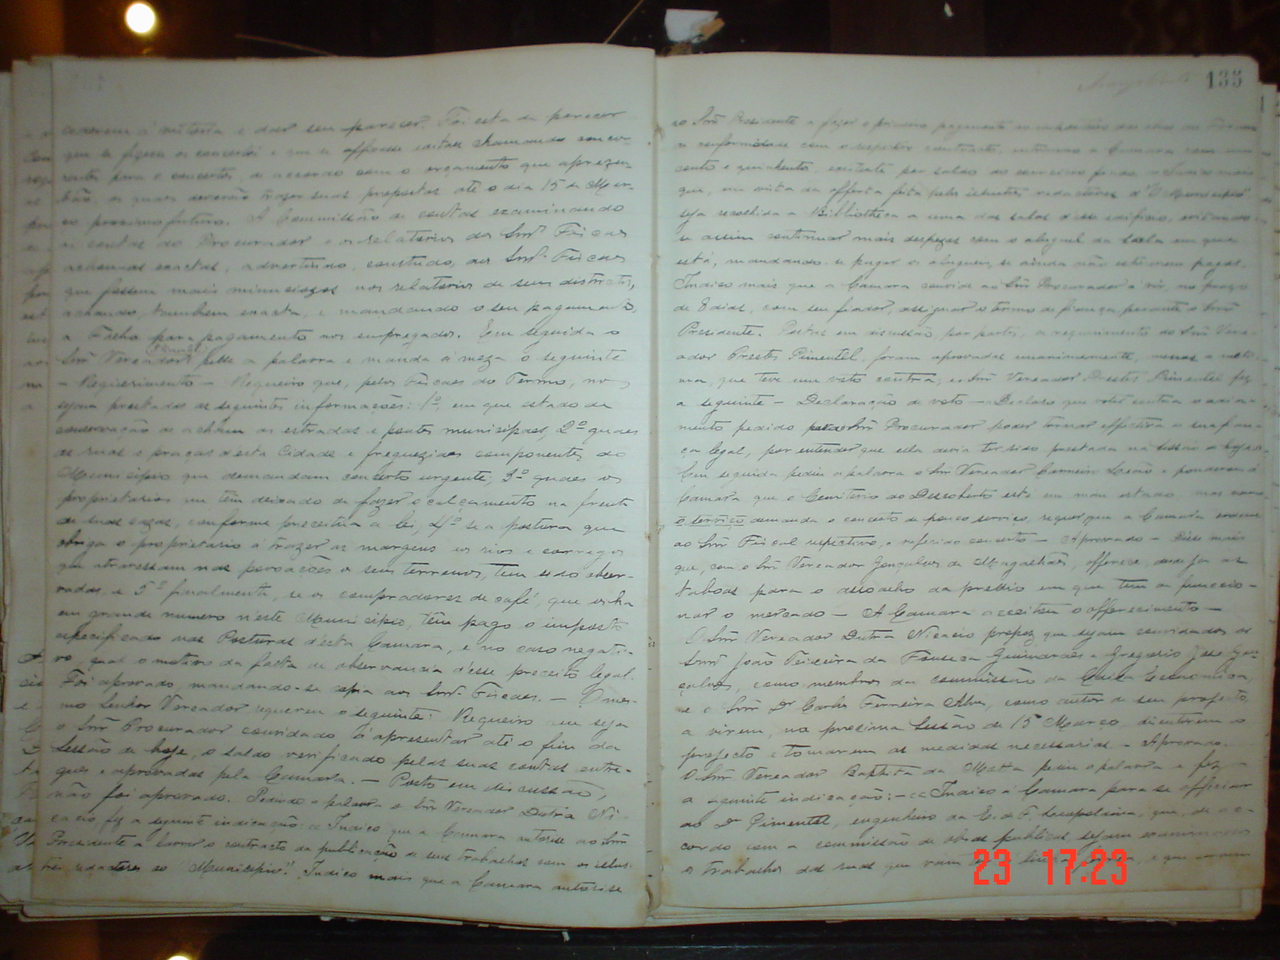 cederem á materia e dar seu parecer. Foi esta de parecer
que se fizesse os concertos e que se affixasse editaes chamando concur-
rentes para o concerto, de accordo com o orçamento que apresen-
tarão, os quaes deverão trazer suas propostas até o dia 15 de Mar-
ço proximo futuro. A Commissão de contas examinando
as contas do Procurador e os relatorios dos Snrs Fiscaes
achou-as exactas, advertindo, comtudo, aos Snrs Fiscaes
que fossem mais minuciosos nos relatorios de seus districtos,
achando, tambem exacta, e mandando o seu pagamento,
a Folha para pagamento aos empregados. Em seguida o
Snr Vereador pede a palavra e manda á meza o seguinte
— Requerimento — Requeiro que, pelos Fiscaes do Termo, nos
sejam prestadas as seguintes informações: 1º, em que estado de
conservação se achão as estradas e pontes municipaes, 2º quaes
as ruas e praças d'esta Cidade e freguezias componentes do
Municipio que demandam concerto urgente; 3º quaes os
proprietarios que têm deixado de fazer o calçamento na frente
de suas casas, conforme preceitua a lei, 4º se a postura que
obriga o proprietario á trazer as margens dos rios e corregos
que atravessam nas povoações os seus terrenos, tem sido obser-
vada, e 5º finalmente, se os compradores de café, que os ha
em grande numero n'este Municipio, têm pago o imposto
especificado nas Posturas d'esta Camara, e no caso negati-
vo, qual o motivo da falta de observancia d'esse preceito legal.
Foi aprovado, mandando-se copia aos Snrs Fiscaes. — O mes-
mo Senhor Vereador requereu o seguinte: Requeiro que seja
o Snr Procurador convidado á apresentar até o fim da
Sessão de hoje, o saldo verificado pelas suas contas entre-
gues e aprovadas pela Camara. — Posto em discussão,
não foi aprovado. Pedindo a palavra o Snr Vereador Dutra Ni-
cacio fez a seguinte indicação: Indico que a Camara autorise ao Snr
Presidente a lavrar o contracto da publicação de seus trabalhos com os
redactores do "Municipio". Indico mais que a Camara autorise
133
ao Snr Presidente a fazer o primeiro pagamento
na conformidade com o respectivo contracto,
cento e quinhentos,
que, em vista da offerta feita pelos redactores d'"O Municipio"
seja recolhida a Bibliotheca a uma das salas d'esse edificio, evitando-
se assim continuar mais despezas com o aluguel da sala em que
está, mandando-se pagar os alugueis, se ainda não estiverem pagos.
Indico mais que a Camara convide ao Snr Procurador a vir, no prazo
de 8 dias, com seu fiador, assignar o termo de fiança perante o Snr
Presidente. Postas em discussão, por partes, o requerimento do Snr Vere-
ador Prestes Pimentel, foram aprovadas unanimemente, menos a
que teve um voto contra; o Snr Vereador Prestes Pimentel fez
a seguinte — Declaração de voto — Declaro que votei contra o adia-
mento pedido pelo Snr Procurador poder tornar effectiva a sua fian-
ça legal, por entender que esta devia ter sido prestada na sessão de hoje.
Em seguida pediu a palavra o Snr Vereador Carneiro Leão e ponderou á
Camara que o Cemiterio do Descoberto está em máu estado, mas como
o serviço demanda o concerto de pouco serviço, requer que a Camara ordene
ao Snr Fiscal respectivo, o referido concerto — Aprovado — Disse mais
que, com o Snr Vereador Gonçalves de Magalhães, offerece as
taboas para o do predio em que tem de funccio-
nar o mercado — A Camara acceitou o offerecimento —
O Snr Vereador Dutra Nicacio propoz que sejam convidados os
Snrs João Teixeira da Fonseca Guimarães e Gregorio José Gon-
çalves, como membros da commissão da Caixa Economica,
e o Snr Dr Carlos Ferreira Alves, como autor de seu projecto,
a virem, na proxima Sessão de 15 Março, discutirem o
projecto e tomarem as medidas necessarias — Aprovado.
O Snr Vereador Baptista da Motta pediu a palavra e fez
a seguinte indicação: — Indico á Camara para se officiar
ao Dr Pimentel, engenheiro da E. de F. Leopoldina, que, de ac-
cordo com a commissão de obras publicas, sejam examinados
os trabalhos das ruas que vam
23 17:23